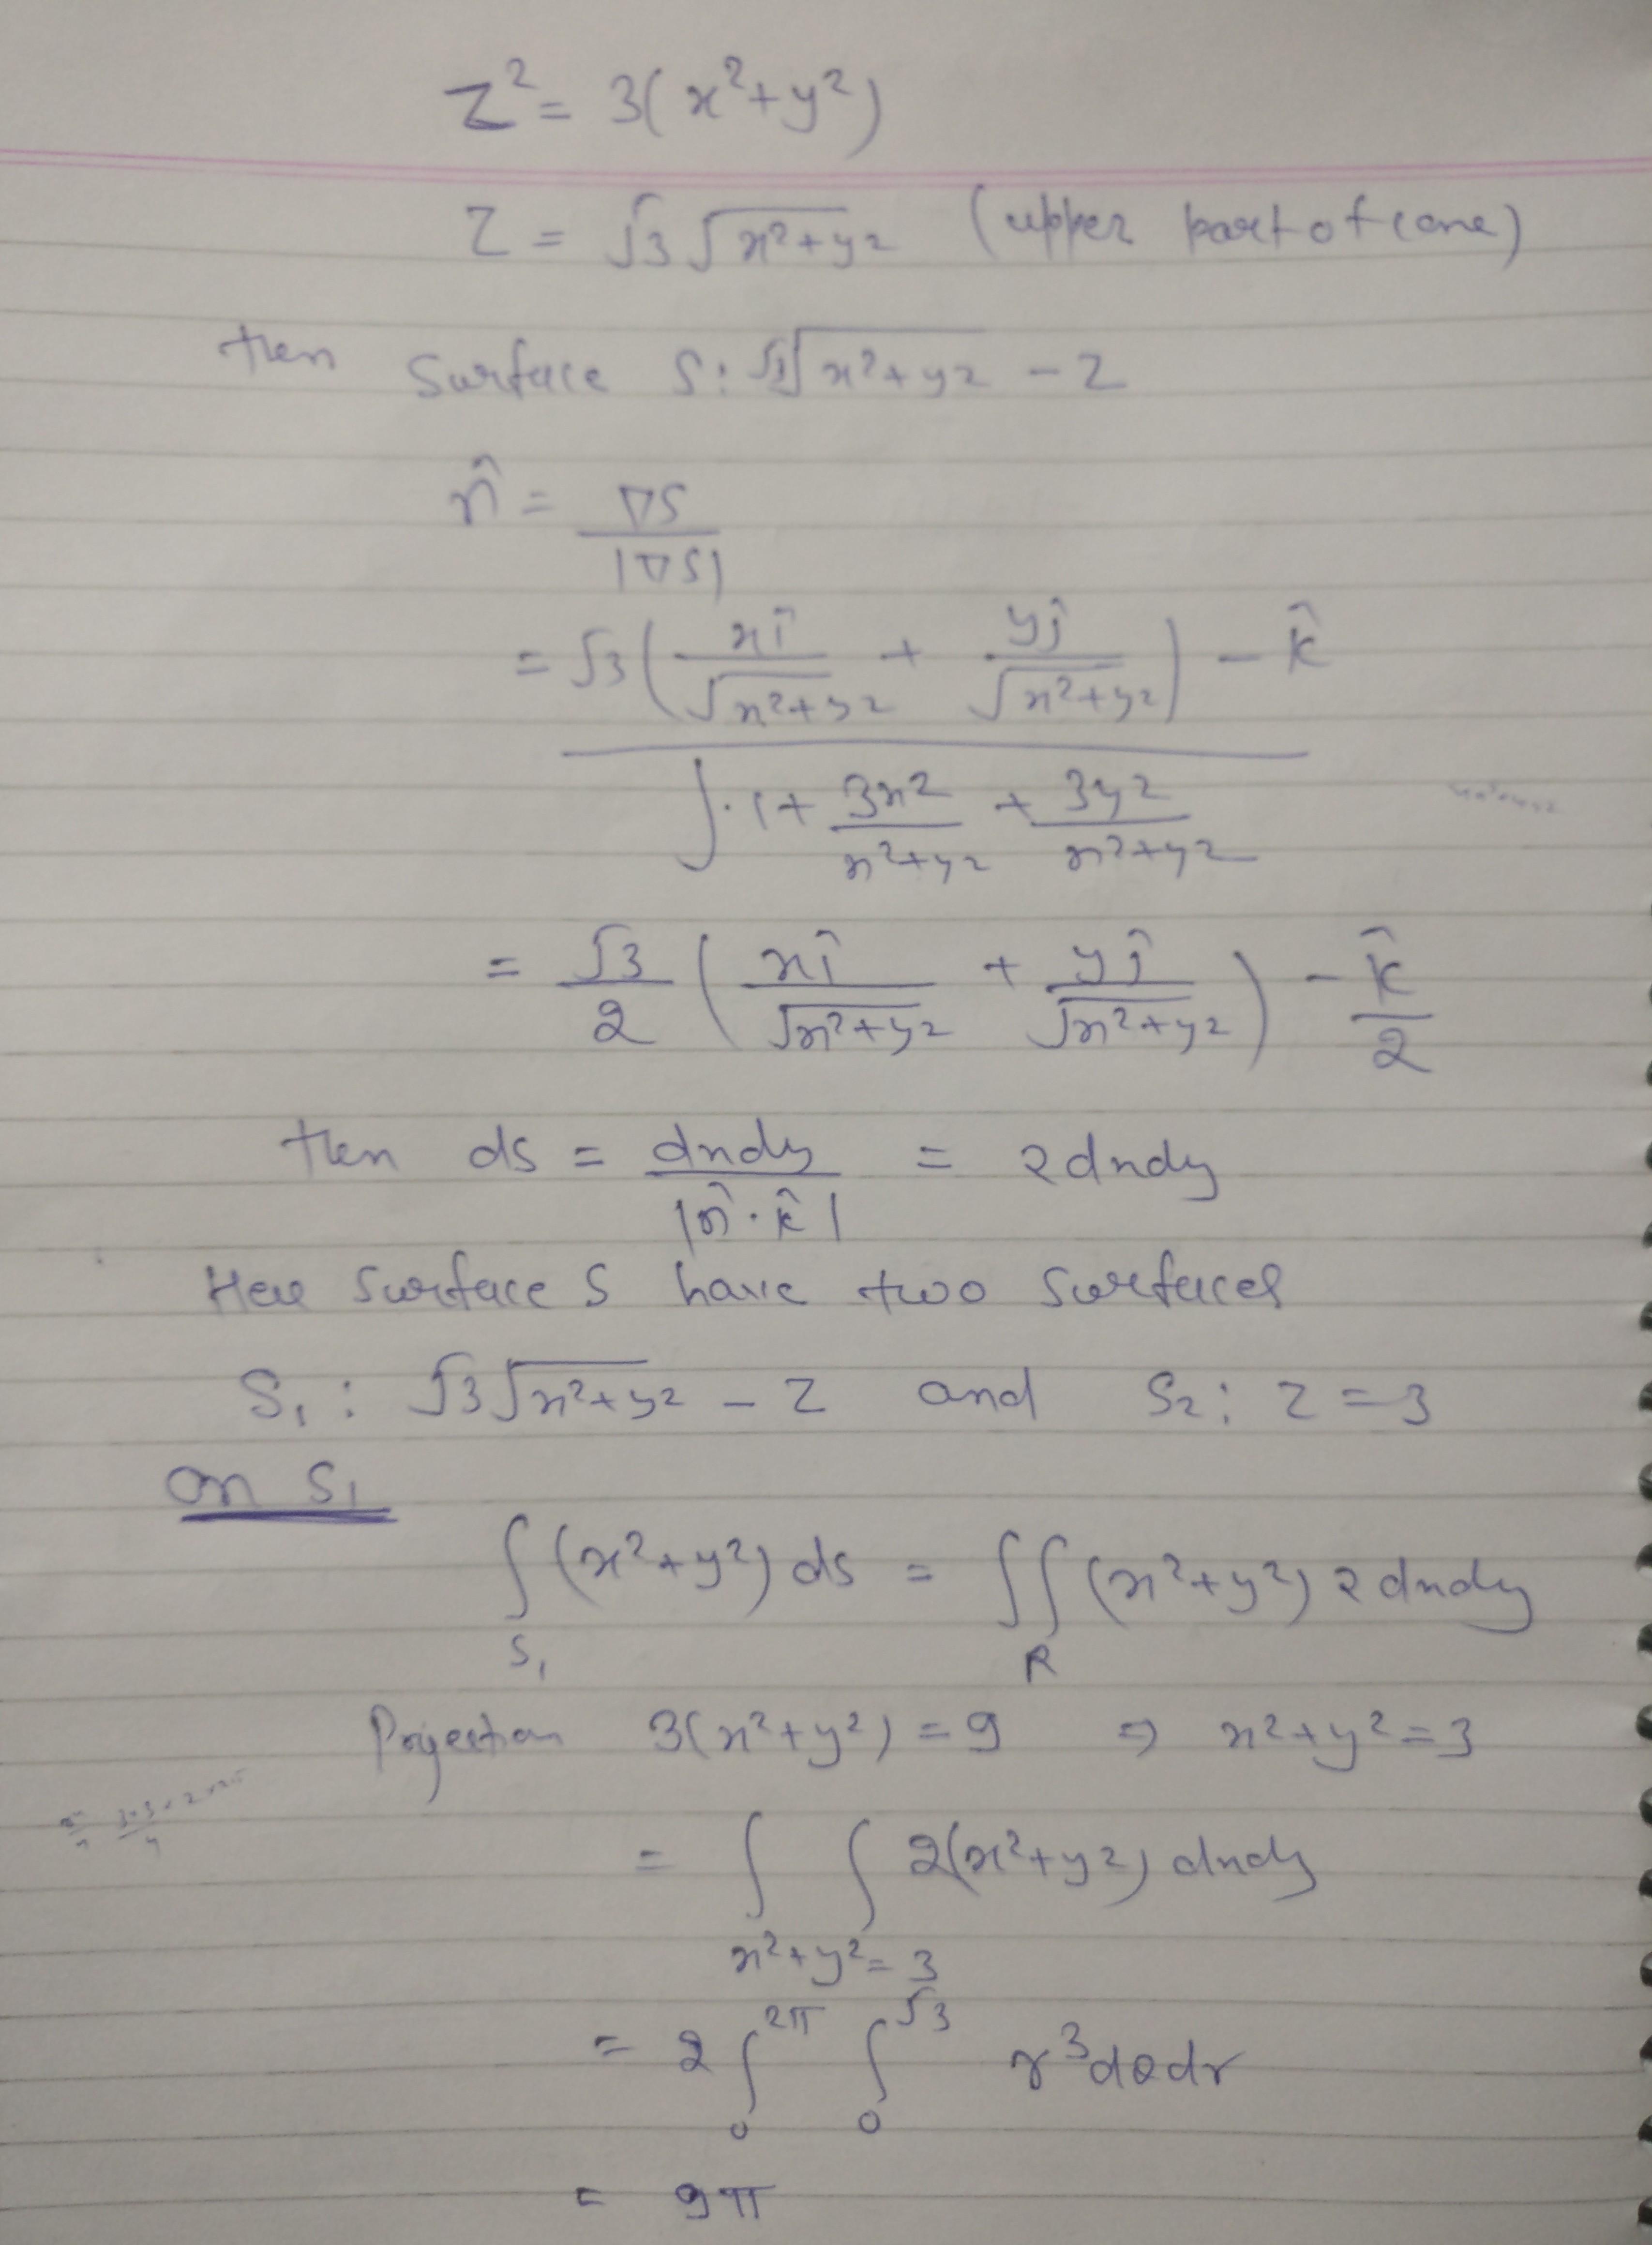 z² = 3(x²+y²)
z = √3 √x²+y² (upper part of cone)
then surface S: √3√x²+y² - z
n̂ = ∇S / |∇S|
= √3( xî / √x²+y² + yĵ / √x²+y² ) - k̂
/ √1 + 3x² / x²+y² + 3y² / x²+y²
= √3 / 2 ( xî / √x²+y² + yĵ / √x²+y² ) - k̂ / 2
then ds = dxdy / |n̂·k̂| = 2dxdy
Here surface S have two surfaces
S₁: √3√x²+y² - z and S₂: z = 3
on S₁
∫_S₁ (x²+y²) ds = ∫∫_R (x²+y²) 2dxdy
Projection 3(x²+y²) = 9 ⇒ x²+y² = 3
= ∫ ∫_x²+y²=3 2(x²+y²) dxdy
= 2 ∫₀^2π ∫₀^√3 r³dθdr
= 9π